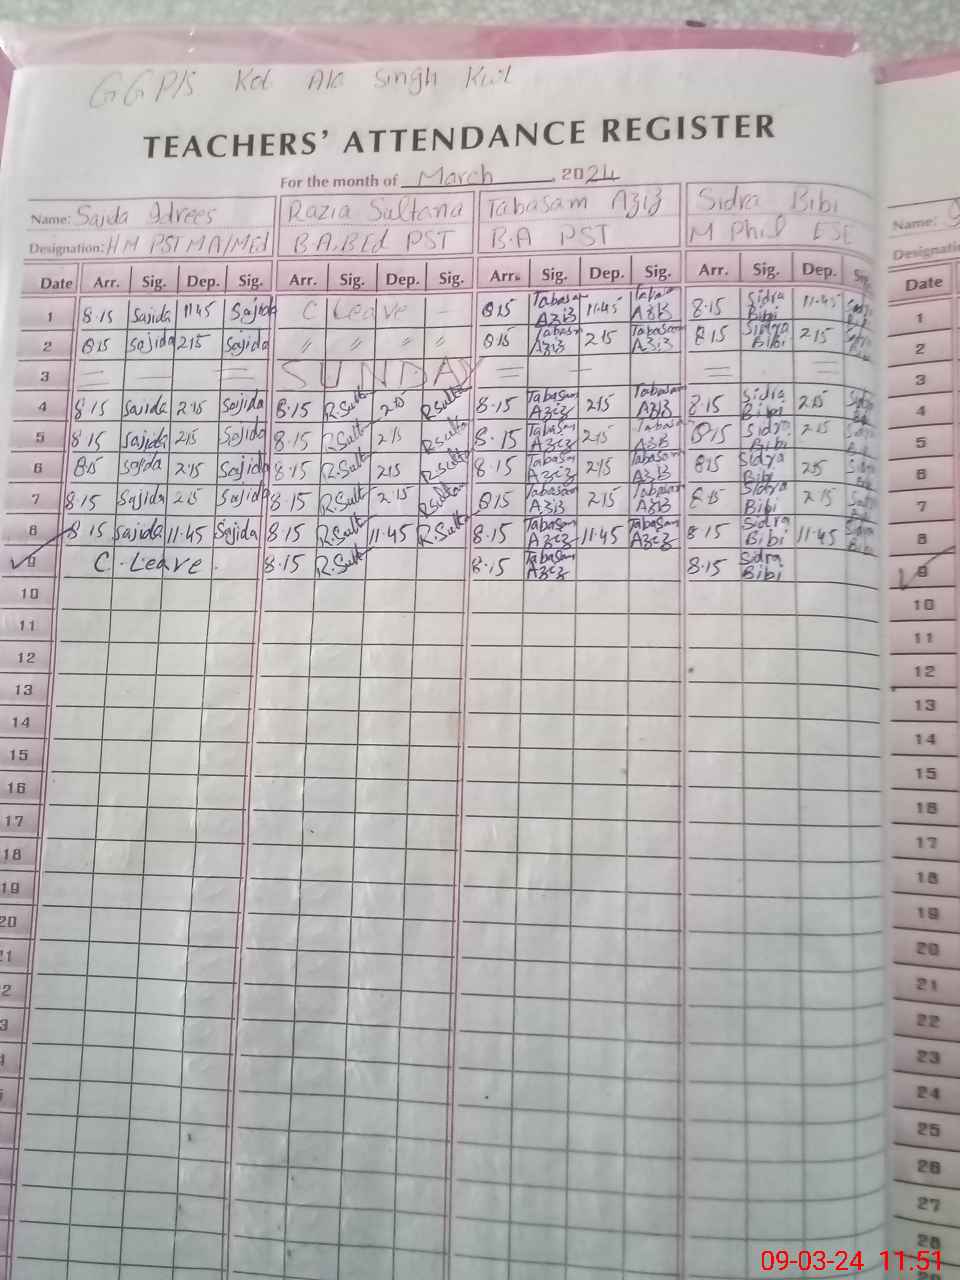 GGPS Kot Ala Singh
TEACHERS' ATTENDANCE REGISTER
For the month of March, 2024
Name: Sajda Idrees Razia Sultana Tabasam Aziz Sidra Bibi Name:
Designation: HM PST MA/MEd B.A.BEd PST B.A PST M Phil ESE
Date Arr. Sig. Dep. Sig. Arr. Sig. Dep. Sig. Arr. Sig. Dep. Sig. Arr. Sig. Dep. Date
1 8.15 Sajida 11.45 Sajida C Leave — 8.15 Tabasam Aziz 11.45 Tabasam Aziz 8.15 Sidra Bibi 11.45 1
2 8.15 Sajida 2.15 Sajida 〃 〃 〃 〃 8.15 Tabasam Aziz 2.15 Tabasam Aziz 8.15 Sidra Bibi 2.15 2
3 = — = SUNDAY = = = 3
4 8.15 Sajida 2.15 Sajida 8.15 R.Sult 2.15 R.Sulta 8.15 Tabasam Aziz 2.15 Tabasam Aziz 8.15 Sidra Bibi 2.15 4
5 8.15 Sajida 2.15 Sajida 8.15 R.Sult 2.15 R Sulta 8.15 Tabasam Aziz 2.15 Tabasam Aziz 8.15 Sidra Bibi 2.15 5
6 8.15 Sajida 2.15 Sajida 8.15 R.Sult 2.15 R.Sulta 8.15 Tabasam Aziz 2.15 Tabasam Aziz 8.15 Sidra Bibi 2.15 6
7 8.15 Sajida 2.15 Sajida 8.15 R.Sult 2.15 RSultan 8.15 Tabasam Aziz 2.15 Tabasam Aziz 8.15 Sidra Bibi 2.15 7
8 8.15 Sajida 11.45 Sajida 8.15 R.Sult 11.45 R.Sulta 8.15 Tabasam Aziz 11.45 Tabasam Aziz 8.15 Sidra Bibi 11.45 8
9 C.Leave. 8.15 R.Sult 8.15 Tabasam Aziz 8.15 Sidra Bibi 9
10 10
11 11
12 12
13 13
14 14
15 15
16 16
17 17
18 18
19 19
20 20
21
22
23
24
25
26
27
28
09-03-24 11.51